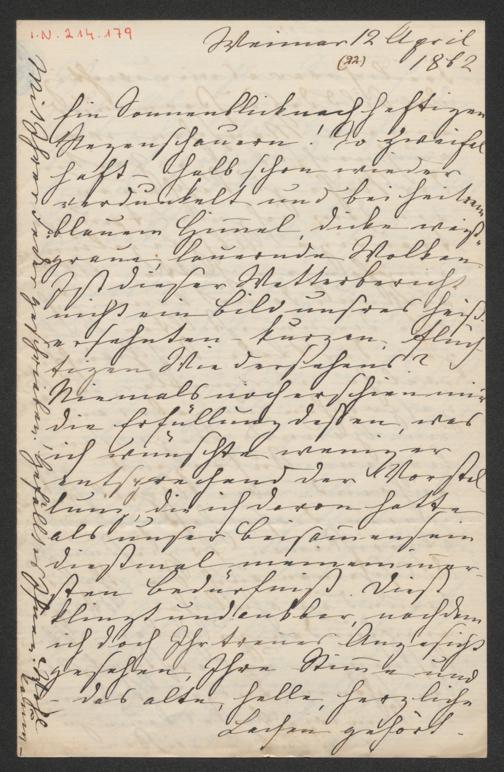 I.N. 214.179
Weimar 12 April
(22) 1862
Ein Sonnenblick nach heftigen
Regenschauern! So zweifel
haft – halb schon wieder
verdunkelt und bei heiterm
blauem Himmel, dicke weiß-
graue, lauernde Wolken
Ist dieser Wetterbericht
nicht ein Bild unsres heiß
ersehnten – kurzen, flüch
tigen Wiedersehens?
Niemals noch erschien mir
die Erfüllung dessen, was
ich wünschte weniger
entsprechend der Vorstel
lung, die ich davon hatte
als unser Beisammensein
dießmal meinem inner-
sten Bedürfniß. Dieß
klingt undankbar, nachdem
ich doch Ihr treues Angesicht
gesehen, Ihre Stimme und
– das alte, helle, herzliche
Lachen gehört.